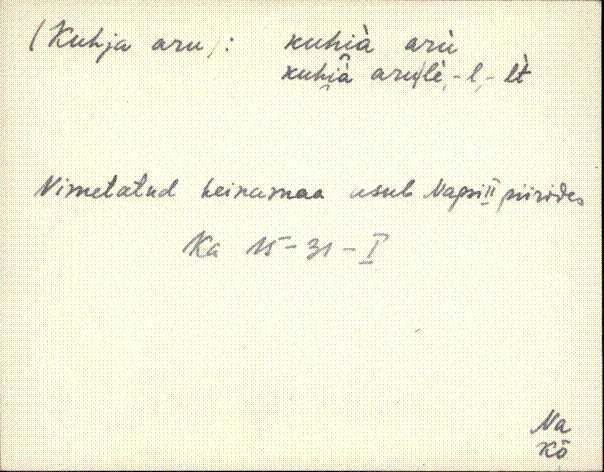 (Kuhja aru): kuhià arù
kuhi̯ä aru|lè, -l, -lt
Nimetatud heinamaa asub Napsi II piirides
Ka 15-31-I
Na
Kõ